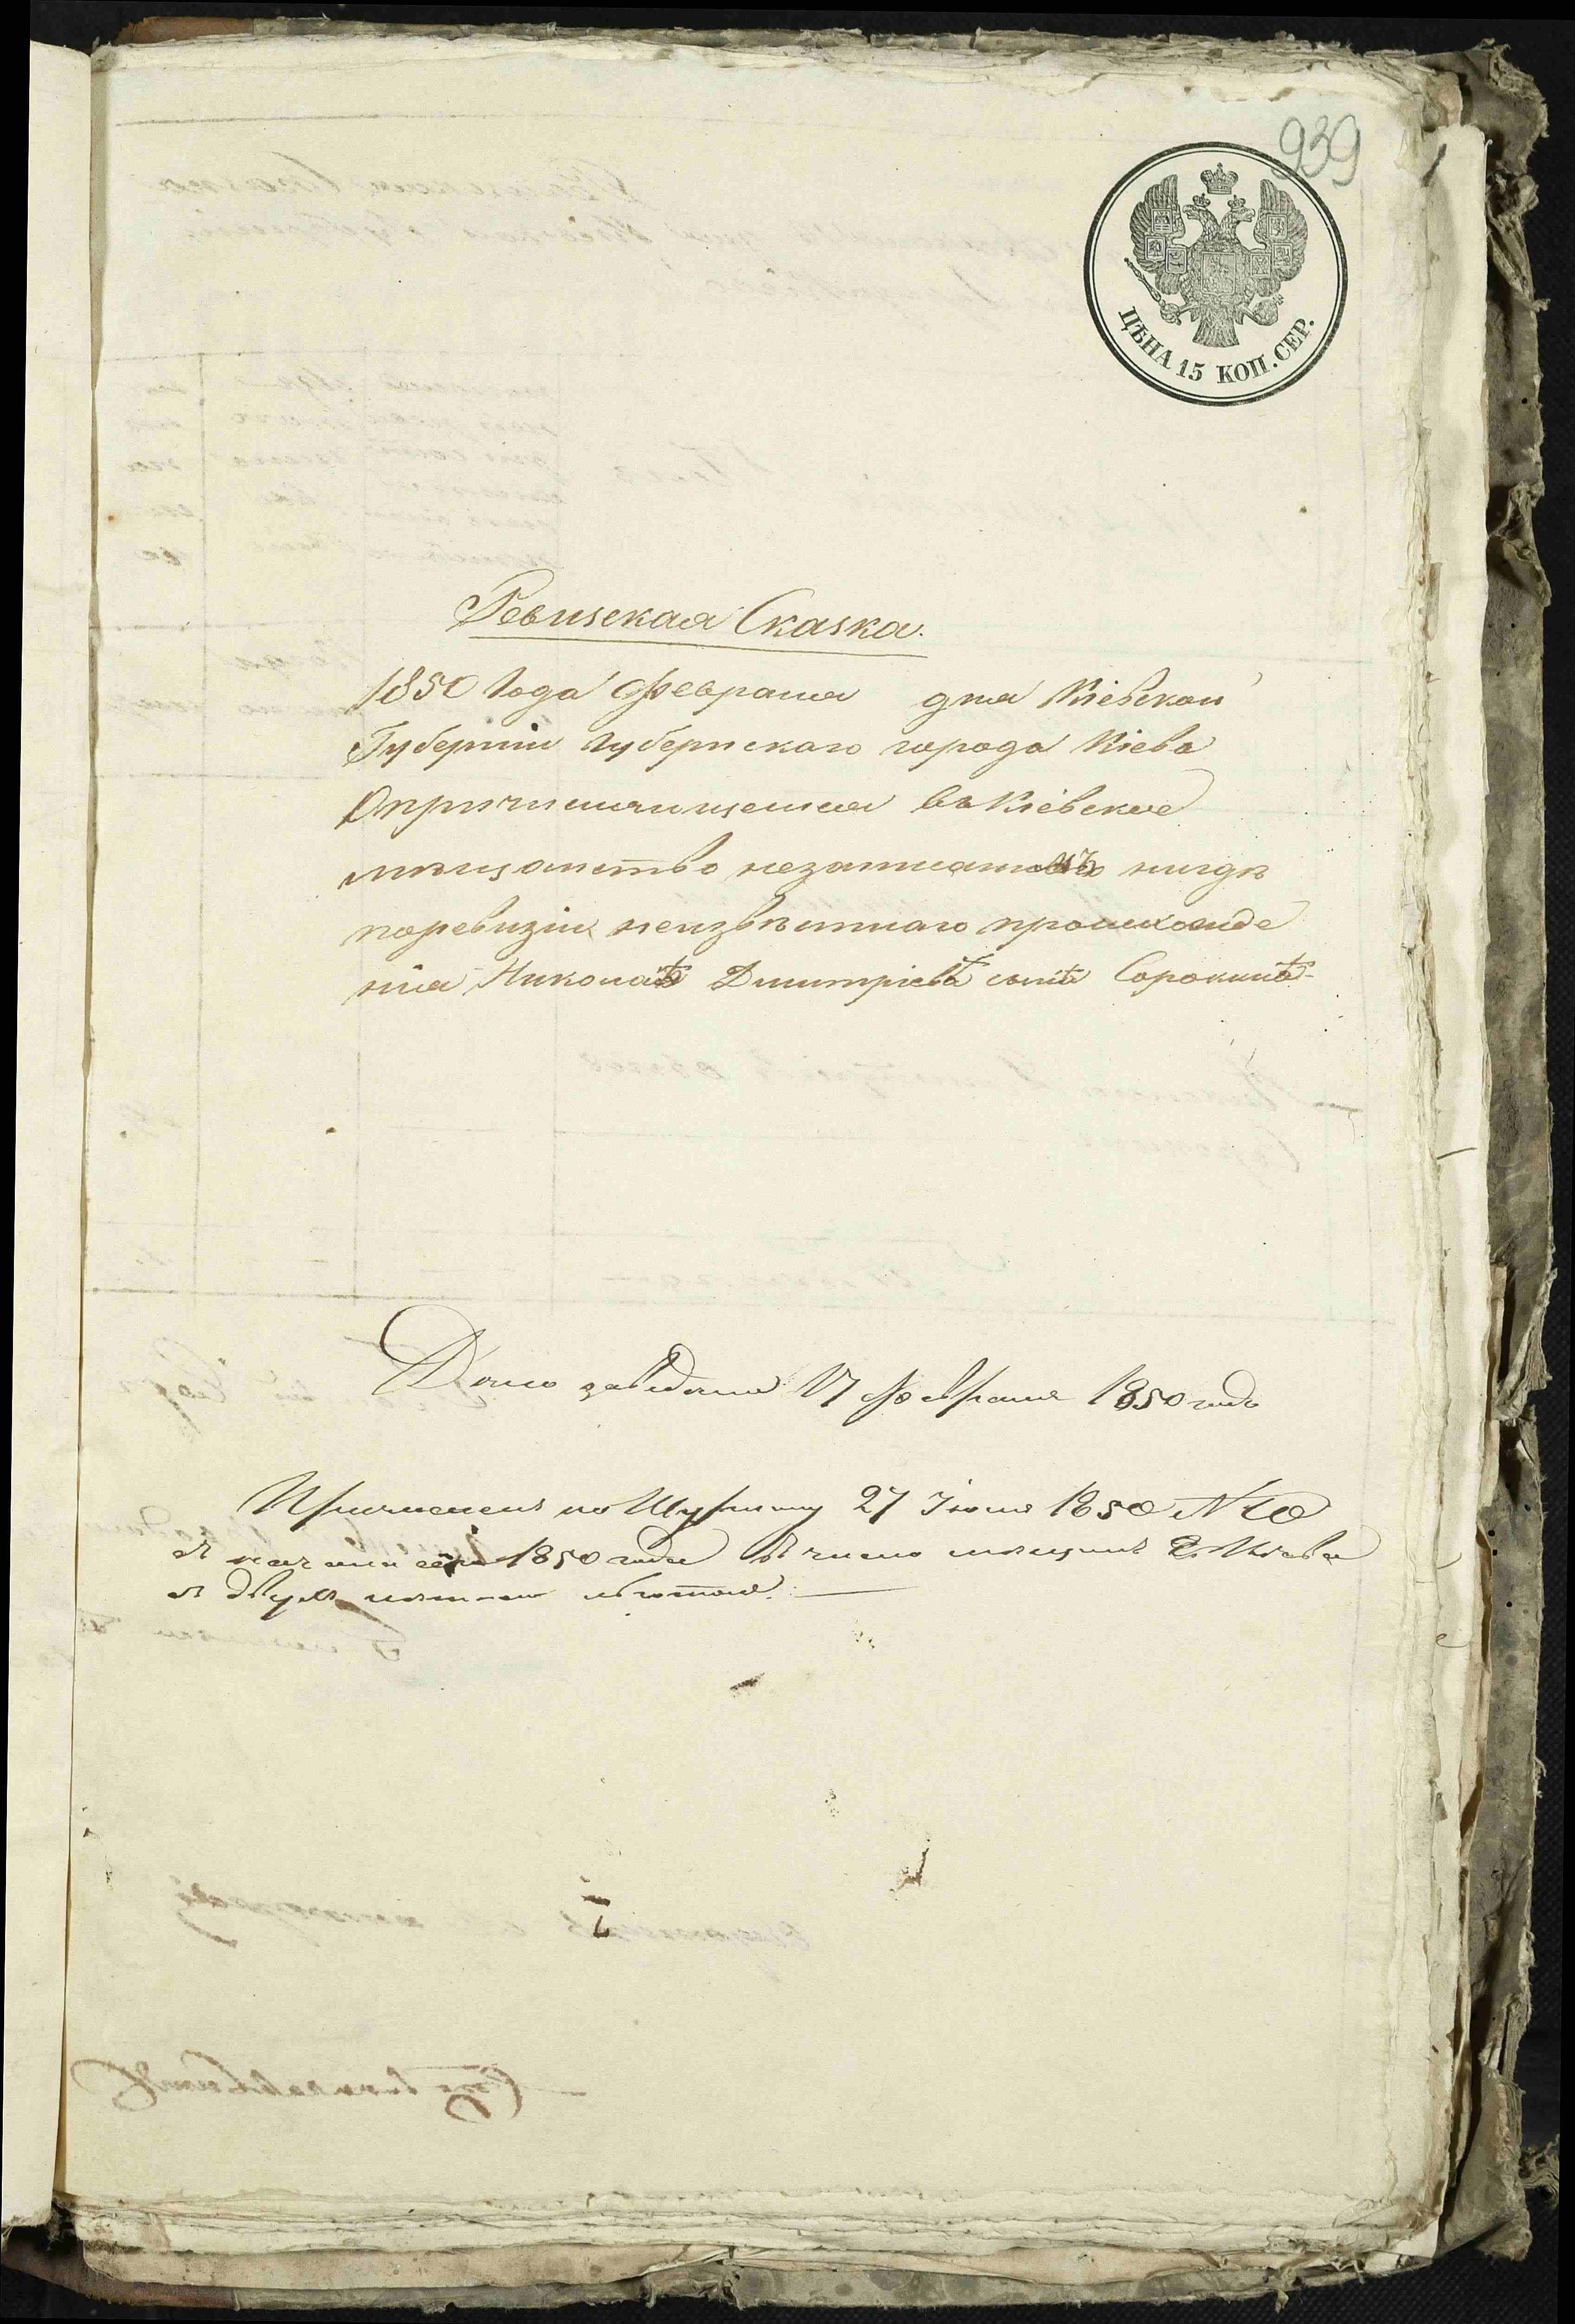 939
ЦѢНА 15 КОП. СЕР.
Ревизская Сказка.
1850 Года Февраля дня Кіевской
Губерніи Губернскаго города Кіева
О причислившемся въ Кіевское
мѣщанство незаписанномъ нигдѣ
поревизіи неизвѣстнаго происхожде
нія Николаѣ Дмитріевѣ сынѣ Сорокинѣ
17 Февраля 1850 года
Причисленъ по 27 Іюня 1850 №
1850 года въ число мѣщанъ г. Кіева
съ двухъ льготою.